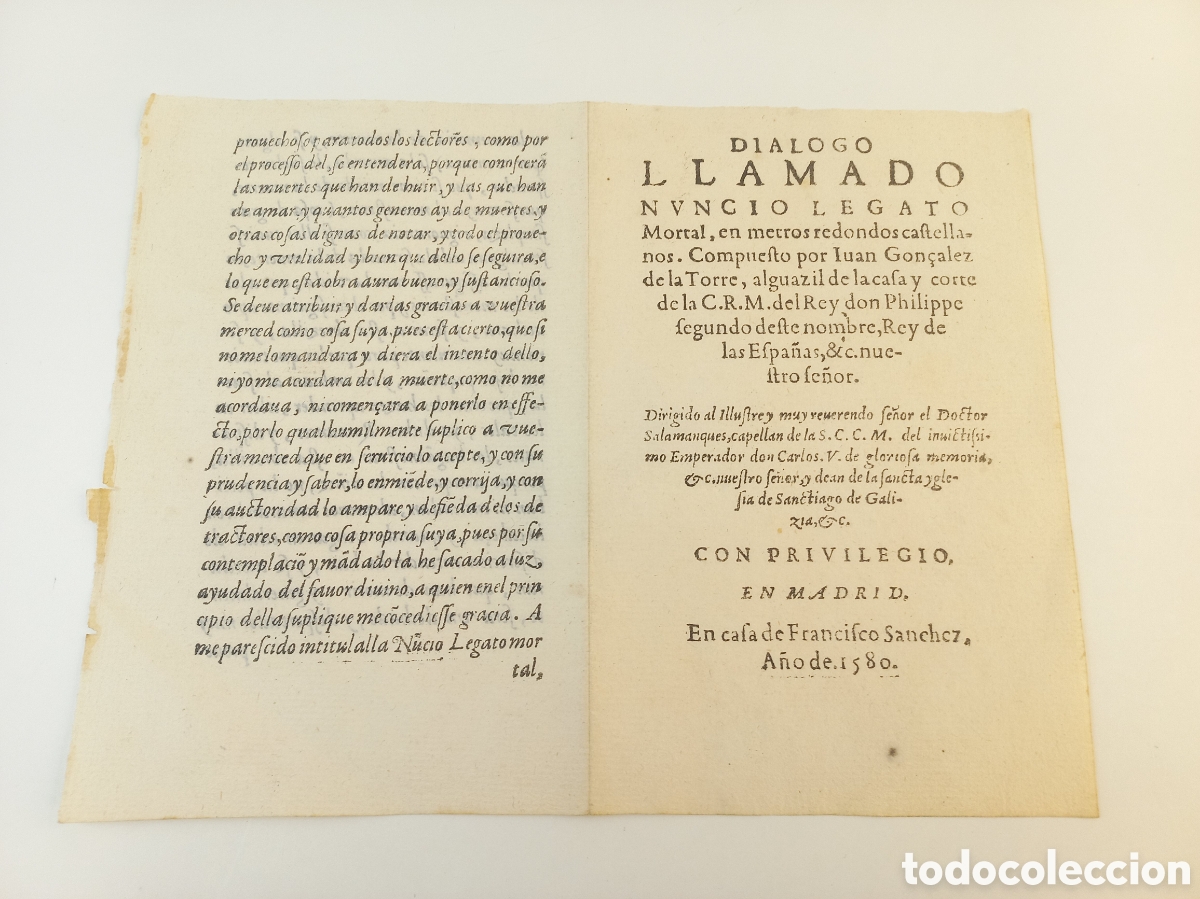 prouechoso para todos los lectores, como por
el processo del, se entendera, porque conoscerá
las muertes que han de huir, y las que han
de amar, y quantos generos ay de muertes, y
otras cosas dignas de notar, y todo el proue-
cho y vtilidad y bien que dello se seguira, e
lo que en esta obra aura bueno, y sustancioso.
Se deue atribuir y dar las gracias a vuestra
merced como cosa suya, pues esta cierto, que si
no me lo mandara y diera el intento dello,
ni yo me acordara de la muerte, como no me
acordaua, ni començara a ponerlo en effe-
cto, por lo qual humilmente suplico a vue-
stra merced que en seruicio lo acepte, y con su
prudencia y saber, lo enmiẽde, y corrija, y con
su auctoridad lo ampare y defiẽda de los de
tractores, como cosa propria suya, pues por su
contemplaciõ y mãdado la he sacado a luz,
ayudado del fauor diuino, a quien en el prin
cipio della suplique me cõcediesse gracia. A
me parescido intitulalla Nũcio Legato mor
tal,
DIALOGO
LLAMADO
NVNCIO LEGATO
Mortal, en metros redondos castella-
nos. Compuesto por Iuan Gonçalez
de la Torre, alguazil de la casa y corte
de la C.R.M. del Rey don Philippe
segundo deste nombre, Rey de
las Españas, &c. nue-
stro señor.
Dirigido al Illustre y muy reuerendo señor el Doctor
Salamanques, capellan de la S. C. C. M. del inuictissi-
mo Emperador don Carlos. V. de gloriosa memoria,
&c. nuestro señor, y dean de la sancta ygle-
sia de Sanctiago de Gali-
zia, &c.
CON PRIVILEGIO,
EN MADRID,
En casa de Francisco Sanchez,
Año de. 1580.
todocoleccion